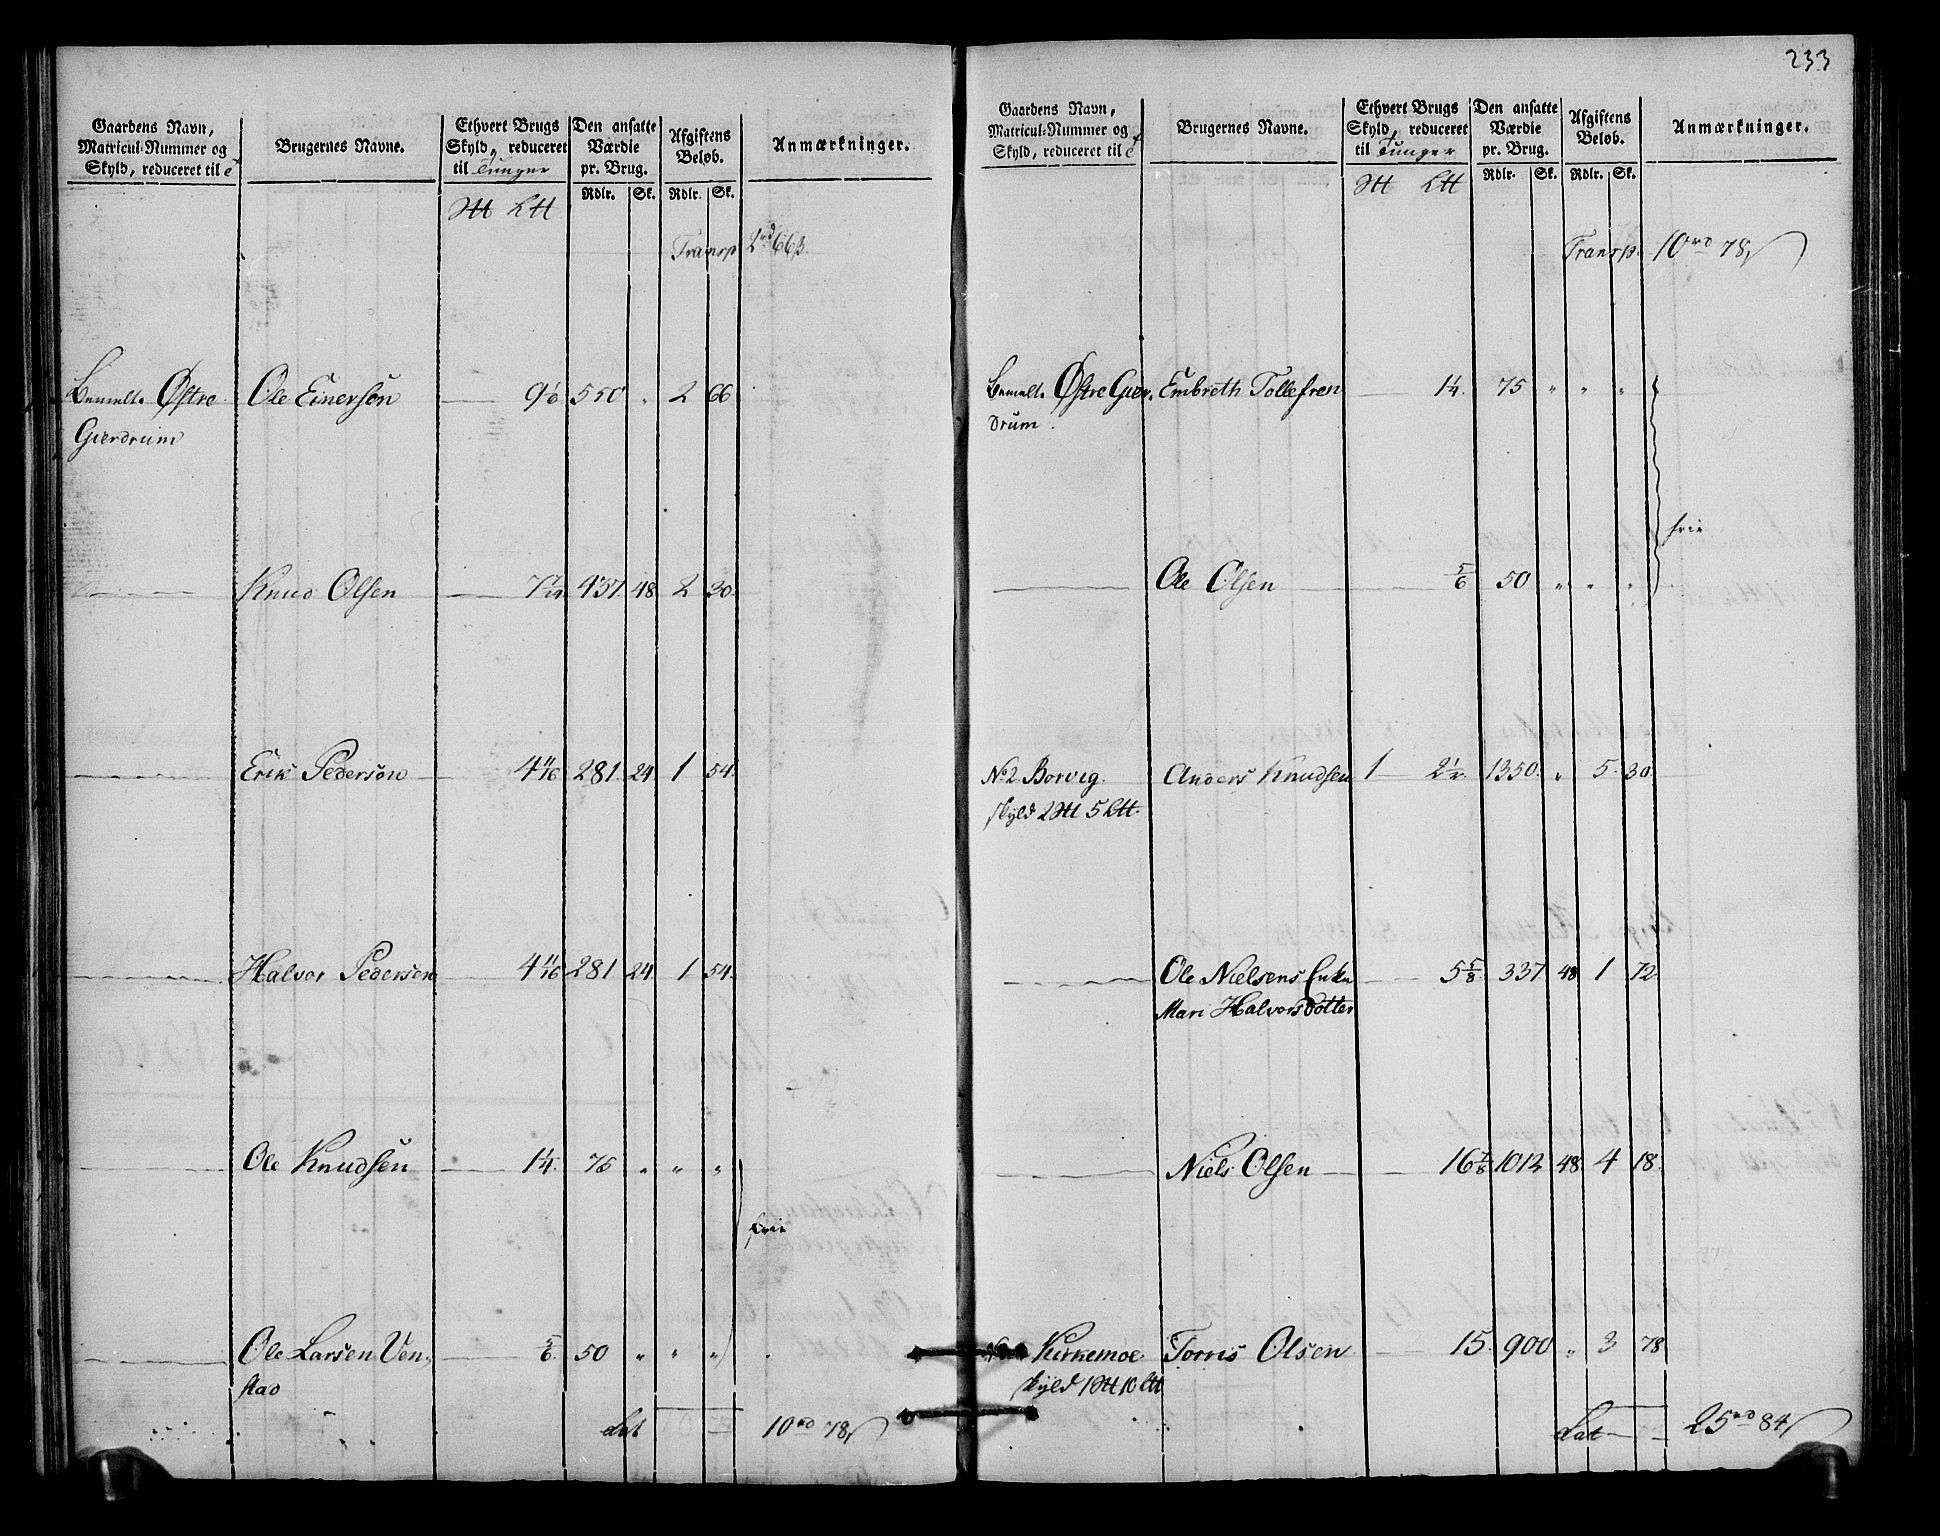 233
Gaardens Navn, Matricul-Nummer og Skyld, reduceret til
Brugernes Navne.
Ethvert Brugs Skyld, reduceret til Tunger
Den ansatte Værdie pr. Brug.
Afgiftens Beløb.
Anmærkninger.
Rdlr. Sk. Rdlr. Sk.
Transp 2rd 66 ß
Bemelt. Østre Ole Einersøn 9 1/6 550 „ 2 66
Gierdrum
Knud Olsen 7 7/24 437 48 2 30
Erik Pedersøn 4 11/16 281 24 1 54
Halvor Pedersen 4 11/16 281 24 1 54
Ole Knudsen 1 1/4 75 „ „ „
frie
Ole Larsen Ven 5/6 50 „ „ „
stad
Lat 10rd 78
Gaardens Navn, Matricul-Nummer og Skyld, reduceret til
Brugernes Navne.
Ethvert Brugs Skyld, reduceret til Tunger
Den ansatte Værdie pr. Brug.
Afgiftens Beløb.
Anmærkninger.
Rdlr. Sk. Rdlr. Sk.
Transp. 10rd 78
Bemelt. Østre Gier Embreth Tollefsen 1 1/4 75 „ „ „
drum
frie
Ole Olsen 5/6 50 „ „ „
No 2 Borvig Anders Knudsen 1 2 1/2 1350 „ 5 30
skyld 2 5
Ole Nielsens Enke 5 5/8 337 48 1 72
Mari Halvorsdotter
Niels Olsen 16 7/8 1012 48 4 18
Kirkemoe Torris Olsen 15 900 „ 3 78
skyld 1 10
Lat 25rd 84